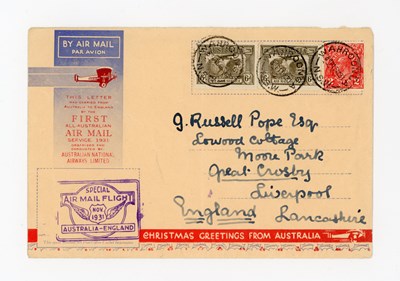 BY AIR MAIL
PAR AVION
THIS LETTER
WAS CARRIED FROM
AUSTRALIA TO ENGLAND
BY THE
FIRST
ALL-AUSTRALIAN
AIR MAIL
SERVICE, 1931
ORGANIZED AND
CONDUCTED BY
AUSTRALIAN NATIONAL
AIRWAYS LIMITED
SPECIAL
AIR MAIL FLIGHT
NOV.
1931
AUSTRALIA-ENGLAND
WAHROONGA
N.S.W.
G. Russell Pope Esq.
Lowood Cottage
Moor Park
Great Crosby
Liverpool
England Lancashire
CHRISTMAS GREETINGS FROM AUSTRALIA